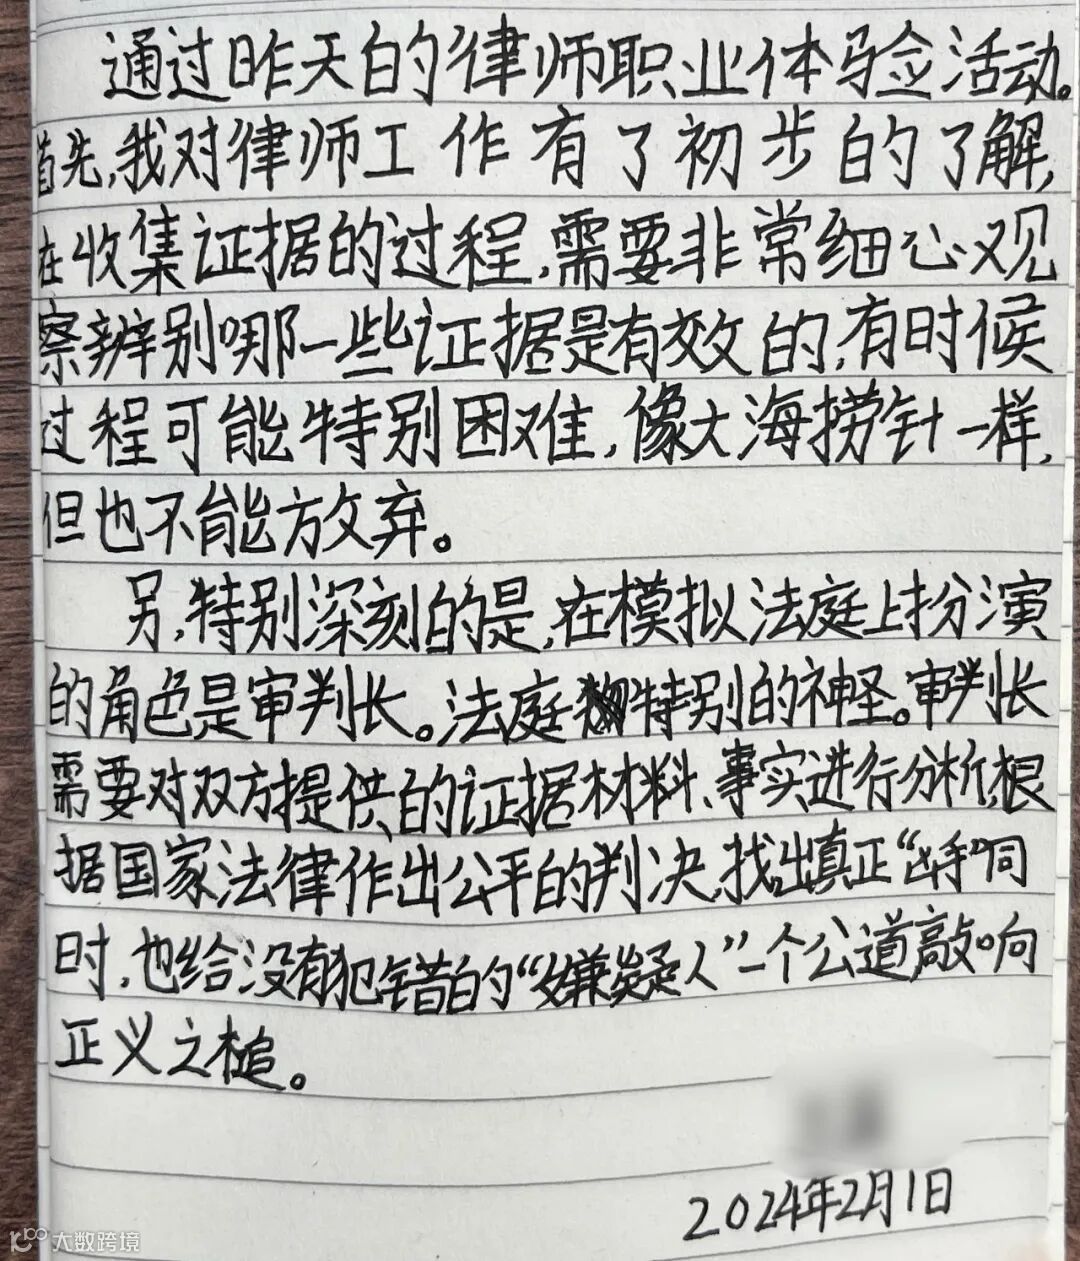 通过昨天的律师职业体验活动。
首先,我对律师工作有了初步的了解,
在收集证据的过程,需要非常细心观
察辨别哪一些证据是有效的,有时候
过程可能特别困难,像大海捞针一样,
但也不能放弃。
另,特别深刻的是,在模拟法庭上扮演
的角色是审判长。法庭特别的神圣。审判长
需要对双方提供的证据材料、事实进行分析,根
据国家法律作出公平的判决,找出真正“凶手”同
时,也给没有犯错的“嫌疑人”一个公道敲响
正义之槌。
2024年2月1日
大数跨境